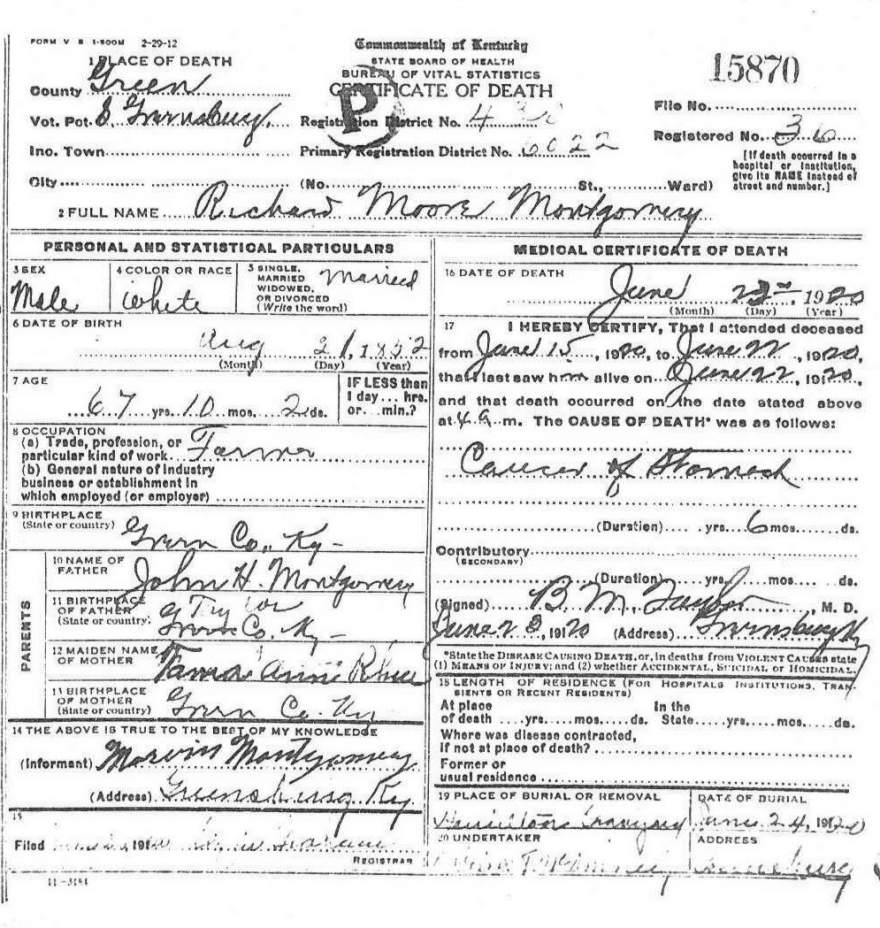 FORM V S 1-500M 2-29-12
Commonwealth of Kentucky
STATE BOARD OF HEALTH
BUREAU OF VITAL STATISTICS
CERTIFICATE OF DEATH
P
15870
1 PLACE OF DEATH
County Green
Vot. Pct. S. Greensburg. Registration District No. 430
File No.
Registered No. 36
Inc. Town Primary Registration District No. 6022
[If death occurred in a
hospital or institution,
give its NAME instead of
street and number.]
City (No. St., Ward)
2 FULL NAME Richard Moore Montgomery
PERSONAL AND STATISTICAL PARTICULARS
3 SEX
Male
4 COLOR OR RACE
White
5 SINGLE,
MARRIED
WIDOWED,
OR DIVORCED
(Write the word)
Married
6 DATE OF BIRTH
Aug 21, 1852
(Month) (Day) (Year)
7 AGE
67 yrs. 10 mos. 2 ds.
IF LESS than
1 day ... hrs.
or ... min.?
8 OCCUPATION
(a) Trade, profession, or
particular kind of work Farmer
(b) General nature of industry
business or establishment in
which employed (or employer)
9 BIRTHPLACE
(State or country)
Green Co., Ky -
PARENTS
10 NAME OF
FATHER
John H. Montgomery
11 BIRTHPLACE
OF FATHER
(State or country)
Green Co. Ky -
12 MAIDEN NAME
OF MOTHER
Ann
13 BIRTHPLACE
OF MOTHER
(State or country)
Green Co. Ky
14 THE ABOVE IS TRUE TO THE BEST OF MY KNOWLEDGE
(Informant) Marvin Montgomery
(Address) Greensburg Ky.
15
Filed 191
REGISTRAR
11-3184
MEDICAL CERTIFICATE OF DEATH
16 DATE OF DEATH
June 1920
(Month) (Day) (Year)
17 I HEREBY CERTIFY, That I attended deceased
from June 15, 1920, to June 22, 1920,
that I last saw him alive on June 22, 1920,
and that death occurred on the date stated above
at 4 a. m. The CAUSE OF DEATH* was as follows:
Cancer of Stomach
(Duration) yrs. 6 mos. ds.
Contributory
(SECONDARY)
(Duration) yrs. mos. ds.
(Signed) B. M. Taylor M. D.
June 23, 1920 (Address) Greensburg Ky
*State the DISEASE CAUSING DEATH, or, in deaths from VIOLENT CAUSES state
(1) MEANS OF INJURY; and (2) whether ACCIDENTAL, SUICIDAL or HOMICIDAL.
18 LENGTH OF RESIDENCE (FOR HOSPITALS INSTITUTIONS, TRAN-
SIENTS OR RECENT RESIDENTS)
At place In the
of death yrs. mos. ds. State yrs. mos. ds.
Where was disease contracted,
if not at place of death?
Former or
usual residence
19 PLACE OF BURIAL OR REMOVAL
Graveyard
DATE OF BURIAL
June 24, 1920
20 UNDERTAKER
ADDRESS
Greensburg